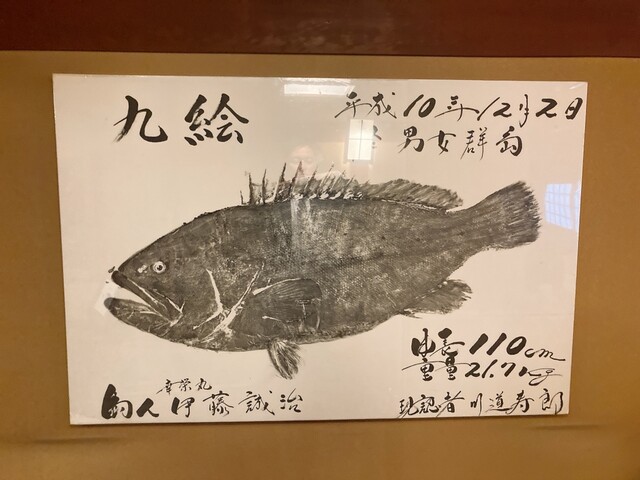 九絵
平成10年12月2日
男女群島
身長110cm
重量21.71kg
幸栄丸
釣人 伊藤誠治
現認者 川道寿郎